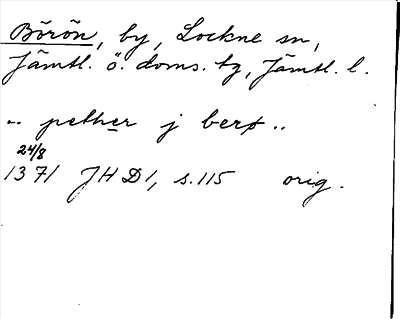 Börön, by, Lockne sn,
Jämtl. ö. doms. tg, Jämtl. l.
.. pether j berø ..
24/8
1371 JHD 1, s. 115 orig.